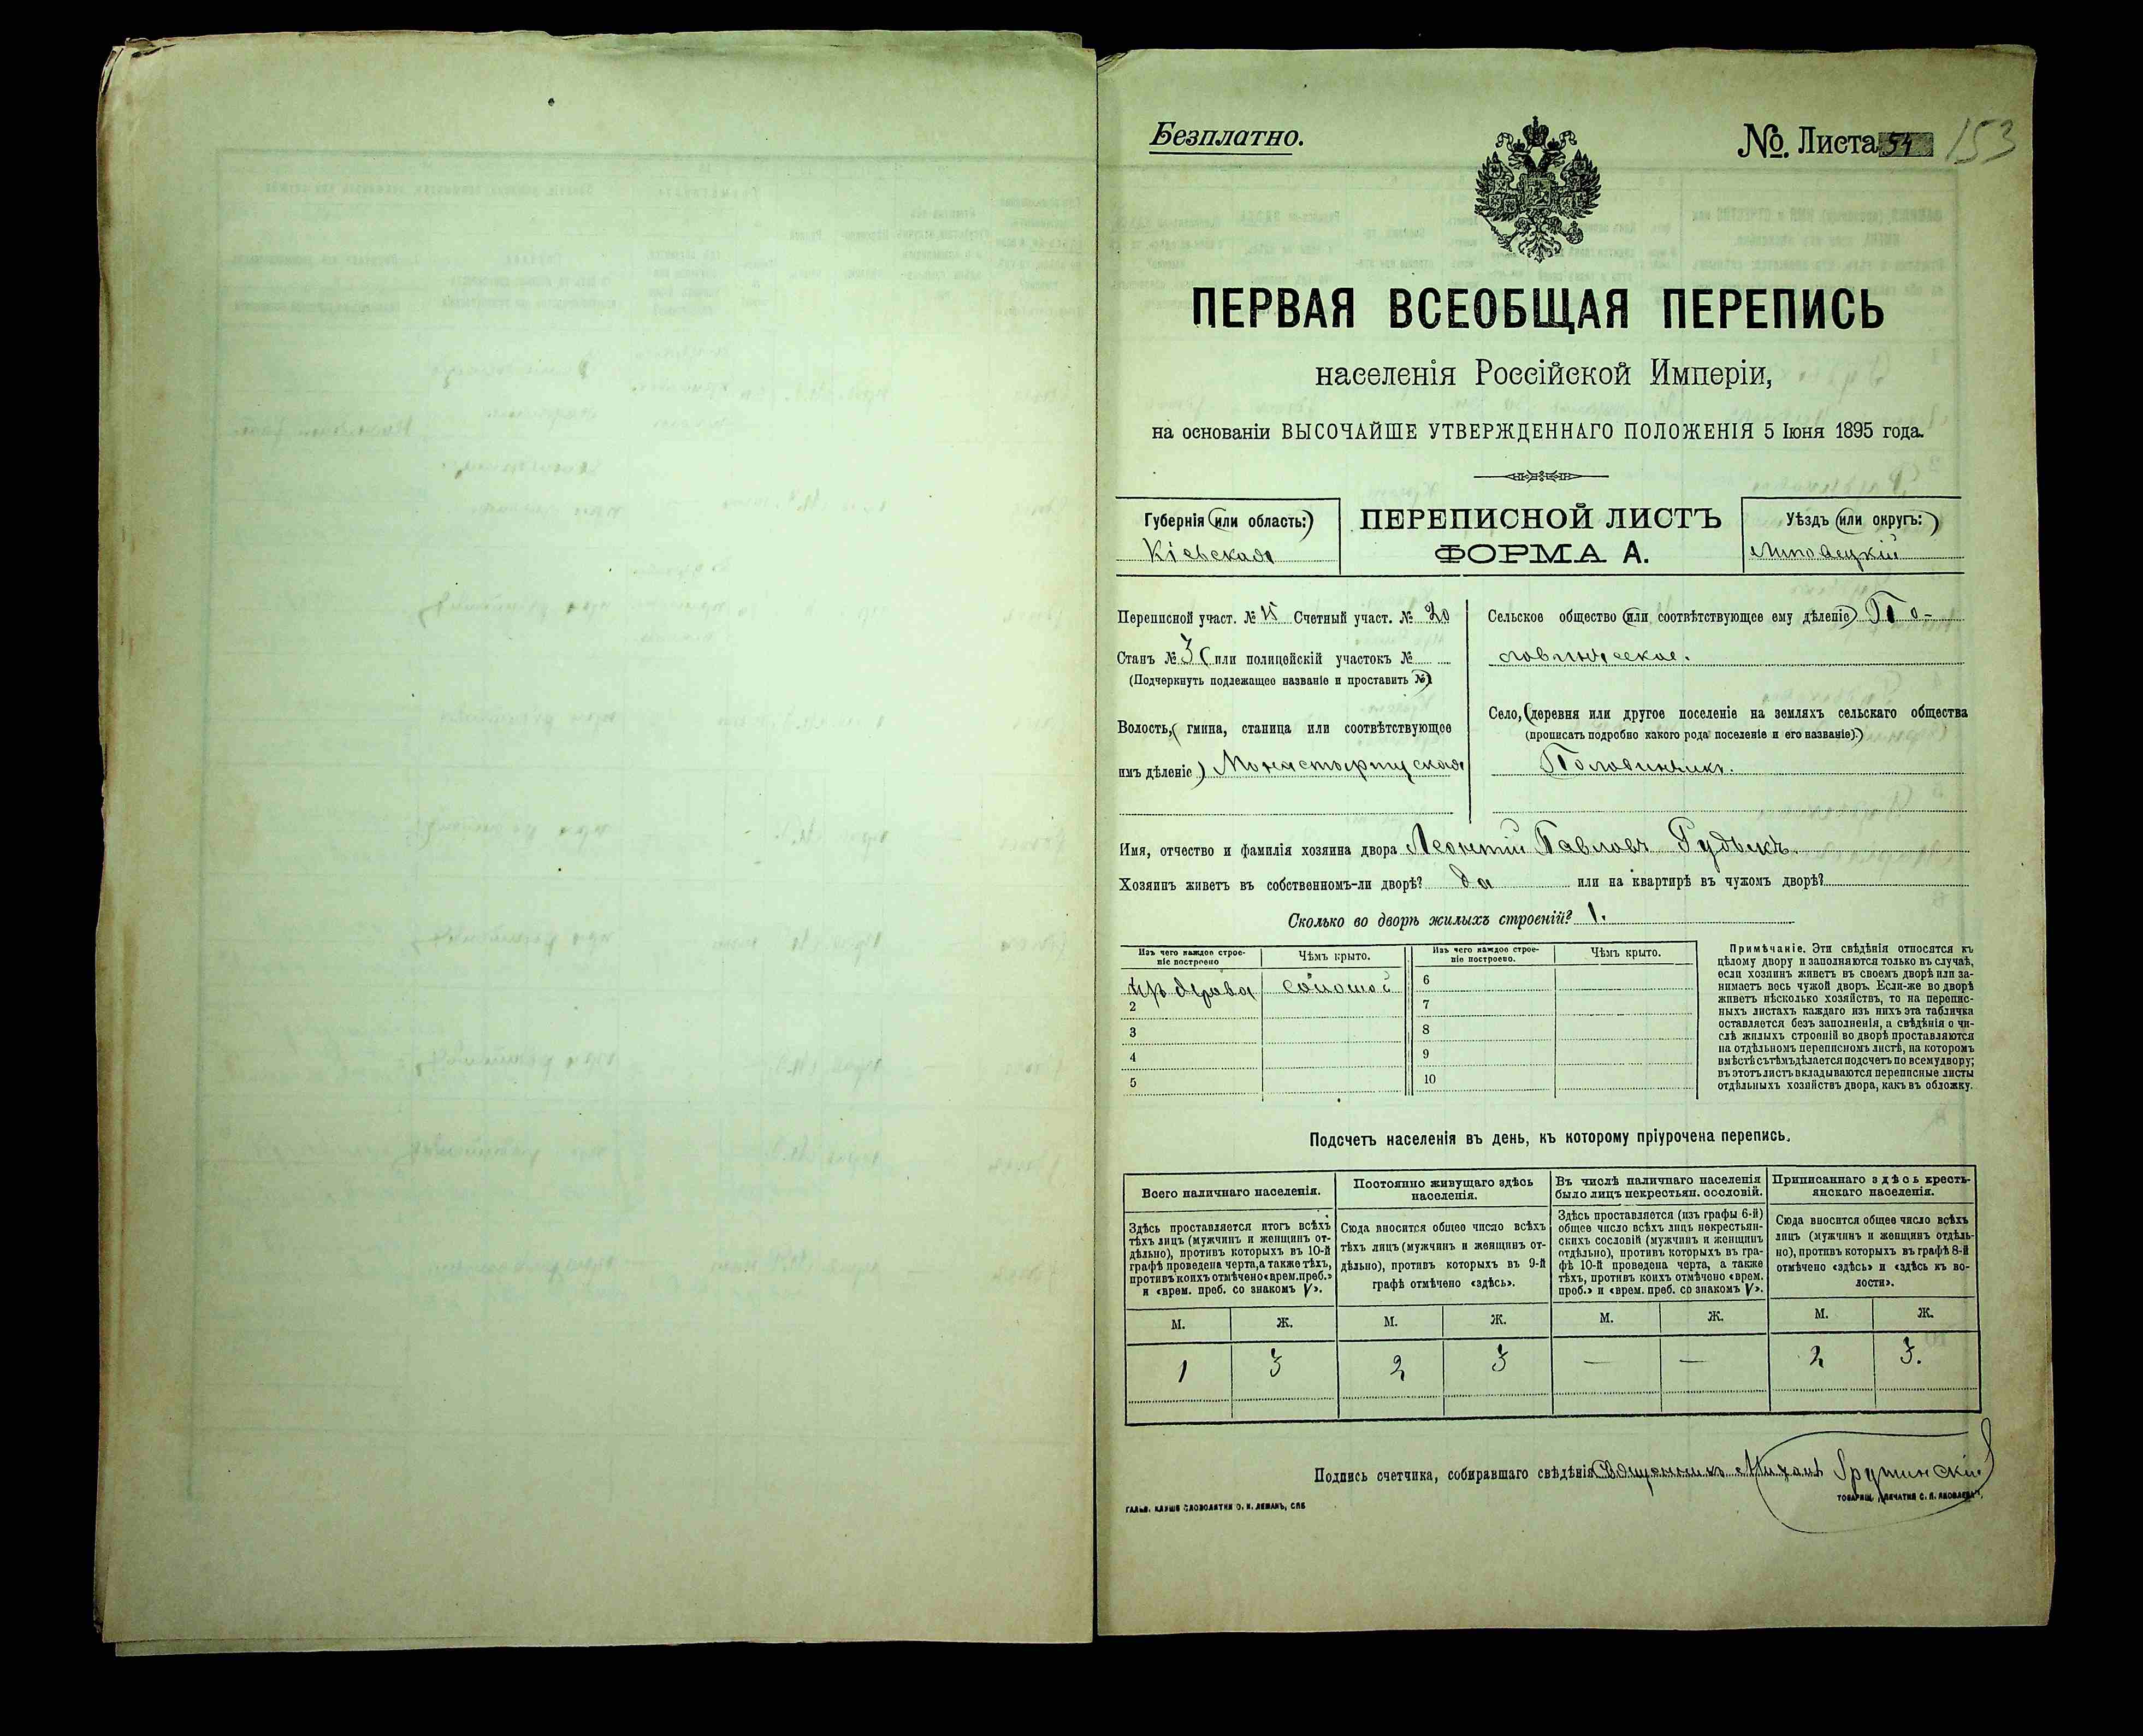 Безплатно.
№. Листа 54 153
ПЕРВАЯ ВСЕОБЩАЯ ПЕРЕПИСЬ
населенія Россійской Имперіи,
на основаніи ВЫСОЧАЙШЕ УТВЕРЖДЕННАГО ПОЛОЖЕНІЯ 5 Іюня 1895 года.
Губернія (или область:)
Кіевская
ПЕРЕПИСНОЙ ЛИСТЪ
ФОРМА А.
Уѣздъ (или округъ:)
Липовецкій
Переписной участ. № Счетный участ. № 20
Станъ № 3 (или полицейскій участокъ №
(Подчеркнуть подлежащее названіе и проставить №)
Волость, (гмина, станица или соотвѣтствующее
имъ дѣленіе) Монастырищская
Сельское общество (или соотвѣтствующее ему дѣленіе) По-
ловинчское.
Село, (деревня или другое поселеніе на земляхъ сельскаго общества
(прописать подробно какого рода поселеніе и его названіе).)
Половинчикъ.
Имя, отчество и фамилія хозяина двора Леонтій Павловъ Рудыкъ.
Хозяинъ живетъ въ собственномъ-ли дворѣ? да или на квартирѣ въ чужомъ дворѣ?
Сколько во дворѣ жилыхъ строеній? 1.
Изъ чего каждое строе-
ніе построено
Чѣмъ крыто.
Изъ чего каждое строе-
ніе построено.
Чѣмъ крыто.
изъ дерева соломой 6
2 7
3 8
4 9
5 10
Примѣчаніе. Эти свѣдѣнія относятся къ
цѣлому двору и заполняются только въ случаѣ,
если хозяинъ живетъ въ своемъ дворѣ или за-
нимаетъ весь чужой дворъ. Если-же во дворѣ
живетъ нѣсколько хозяйствъ, то на перепис-
ныхъ листахъ каждаго изъ нихъ эта табличка
оставляется безъ заполненія, а свѣдѣнія о чи-
слѣ жилыхъ строеній во дворѣ проставляются
на отдѣльномъ переписномъ листѣ, на которомъ
вмѣстѣ съ тѣмъ дѣлается подсчетъ по всему двору;
въ этотъ листъ вкладываются переписные листы
отдѣльныхъ хозяйствъ двора, какъ въ обложку.
Подсчетъ населенія въ день, къ которому пріурочена перепись.
Всего наличнаго населенія.
Здѣсь проставляется итогъ всѣхъ
тѣхъ лицъ (мужчинъ и женщинъ от-
дѣльно), противъ которыхъ въ 10-й
графѣ проведена черта, а также тѣхъ,
противъ коихъ отмѣчено «врем. преб.»
и «врем. преб. со знакомъ V».
Постоянно живущаго здѣсь
населенія.
Сюда вносится общее число всѣхъ
тѣхъ лицъ (мужчинъ и женщинъ от-
дѣльно), противъ которыхъ въ 9-й
графѣ отмѣчено «здѣсь».
Въ числѣ наличнаго населенія
было лицъ некрестьян. сословій.
Здѣсь проставляется (изъ графы 6-й)
общее число всѣхъ лицъ некрестьян-
скихъ сословій (мужчинъ и женщинъ
отдѣльно), противъ которыхъ въ гра-
фѣ 10-й проведена черта, а также
тѣхъ, противъ коихъ отмѣчено «врем.
преб.» и «врем. преб. со знакомъ V».
Приписаннаго здѣсь кресть-
янскаго населенія.
Сюда вносится общее число всѣхъ
лицъ (мужчинъ и женщинъ отдѣль-
но), противъ которыхъ въ графѣ 8-й
отмѣчено «здѣсь» и «здѣсь къ во-
лости».
М. Ж. М. Ж. М. Ж. М. Ж.
1 3 2 3 — — 2 3.
Подпись счетчика, собиравшаго свѣдѣнія Священникъ Михаилъ Грушинскій
ГАЛЬВ. КЛИШЕ СЛОВОЛИТНИ О. И. ЛЕМАНЪ, СПБ
ТОВАРИЩ. „ПЕЧАТНЯ С. П. ЯКОВЛЕВА“.